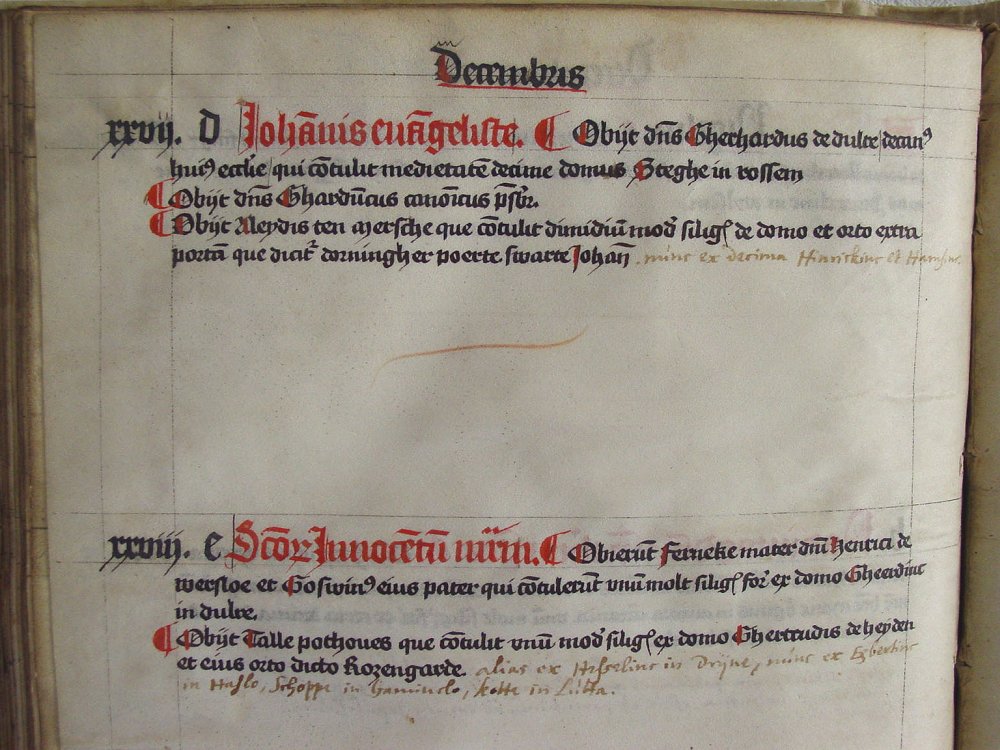 Decembris
xxvij. d Johān̄is euāgeliste. Obijt dn̄s Gherhardus de dulre decan⁹
hui⁹ eccl̄ie qui cōtulit medietatē decime domus Steghe in rossem
Obijt dn̄s Ghardūcus canōicus p̄sbr̄.
Obijt Aleydis ten mersche que cōtulit dimidiū mod̄ siliḡ de domo et orto extra
portā que dicit̄ dorningher poerte swarte Johan̄. nunc ex decima Hinrickinc et
xxviij. e Sc̄oꝝ Innocētū mr̄m. Obierūt Ferneke mater dn̄i Henrici de
wersloe et Goswin⁹ eius pater qui cōtulerūt vnū molt siliḡ for̄ ex domo Gheerdinc
in dulre.
Obijt Talle pothoues que cōtulit vnū mod̄ siliḡ ex domo Ghertrudis de heyden
et eius orto dicto Rozengarde. alias ex Hesselinc in Drijne, nunc ex Egbertinc
in Haslo, Schoppe in haminclo, kotte in Lutta.